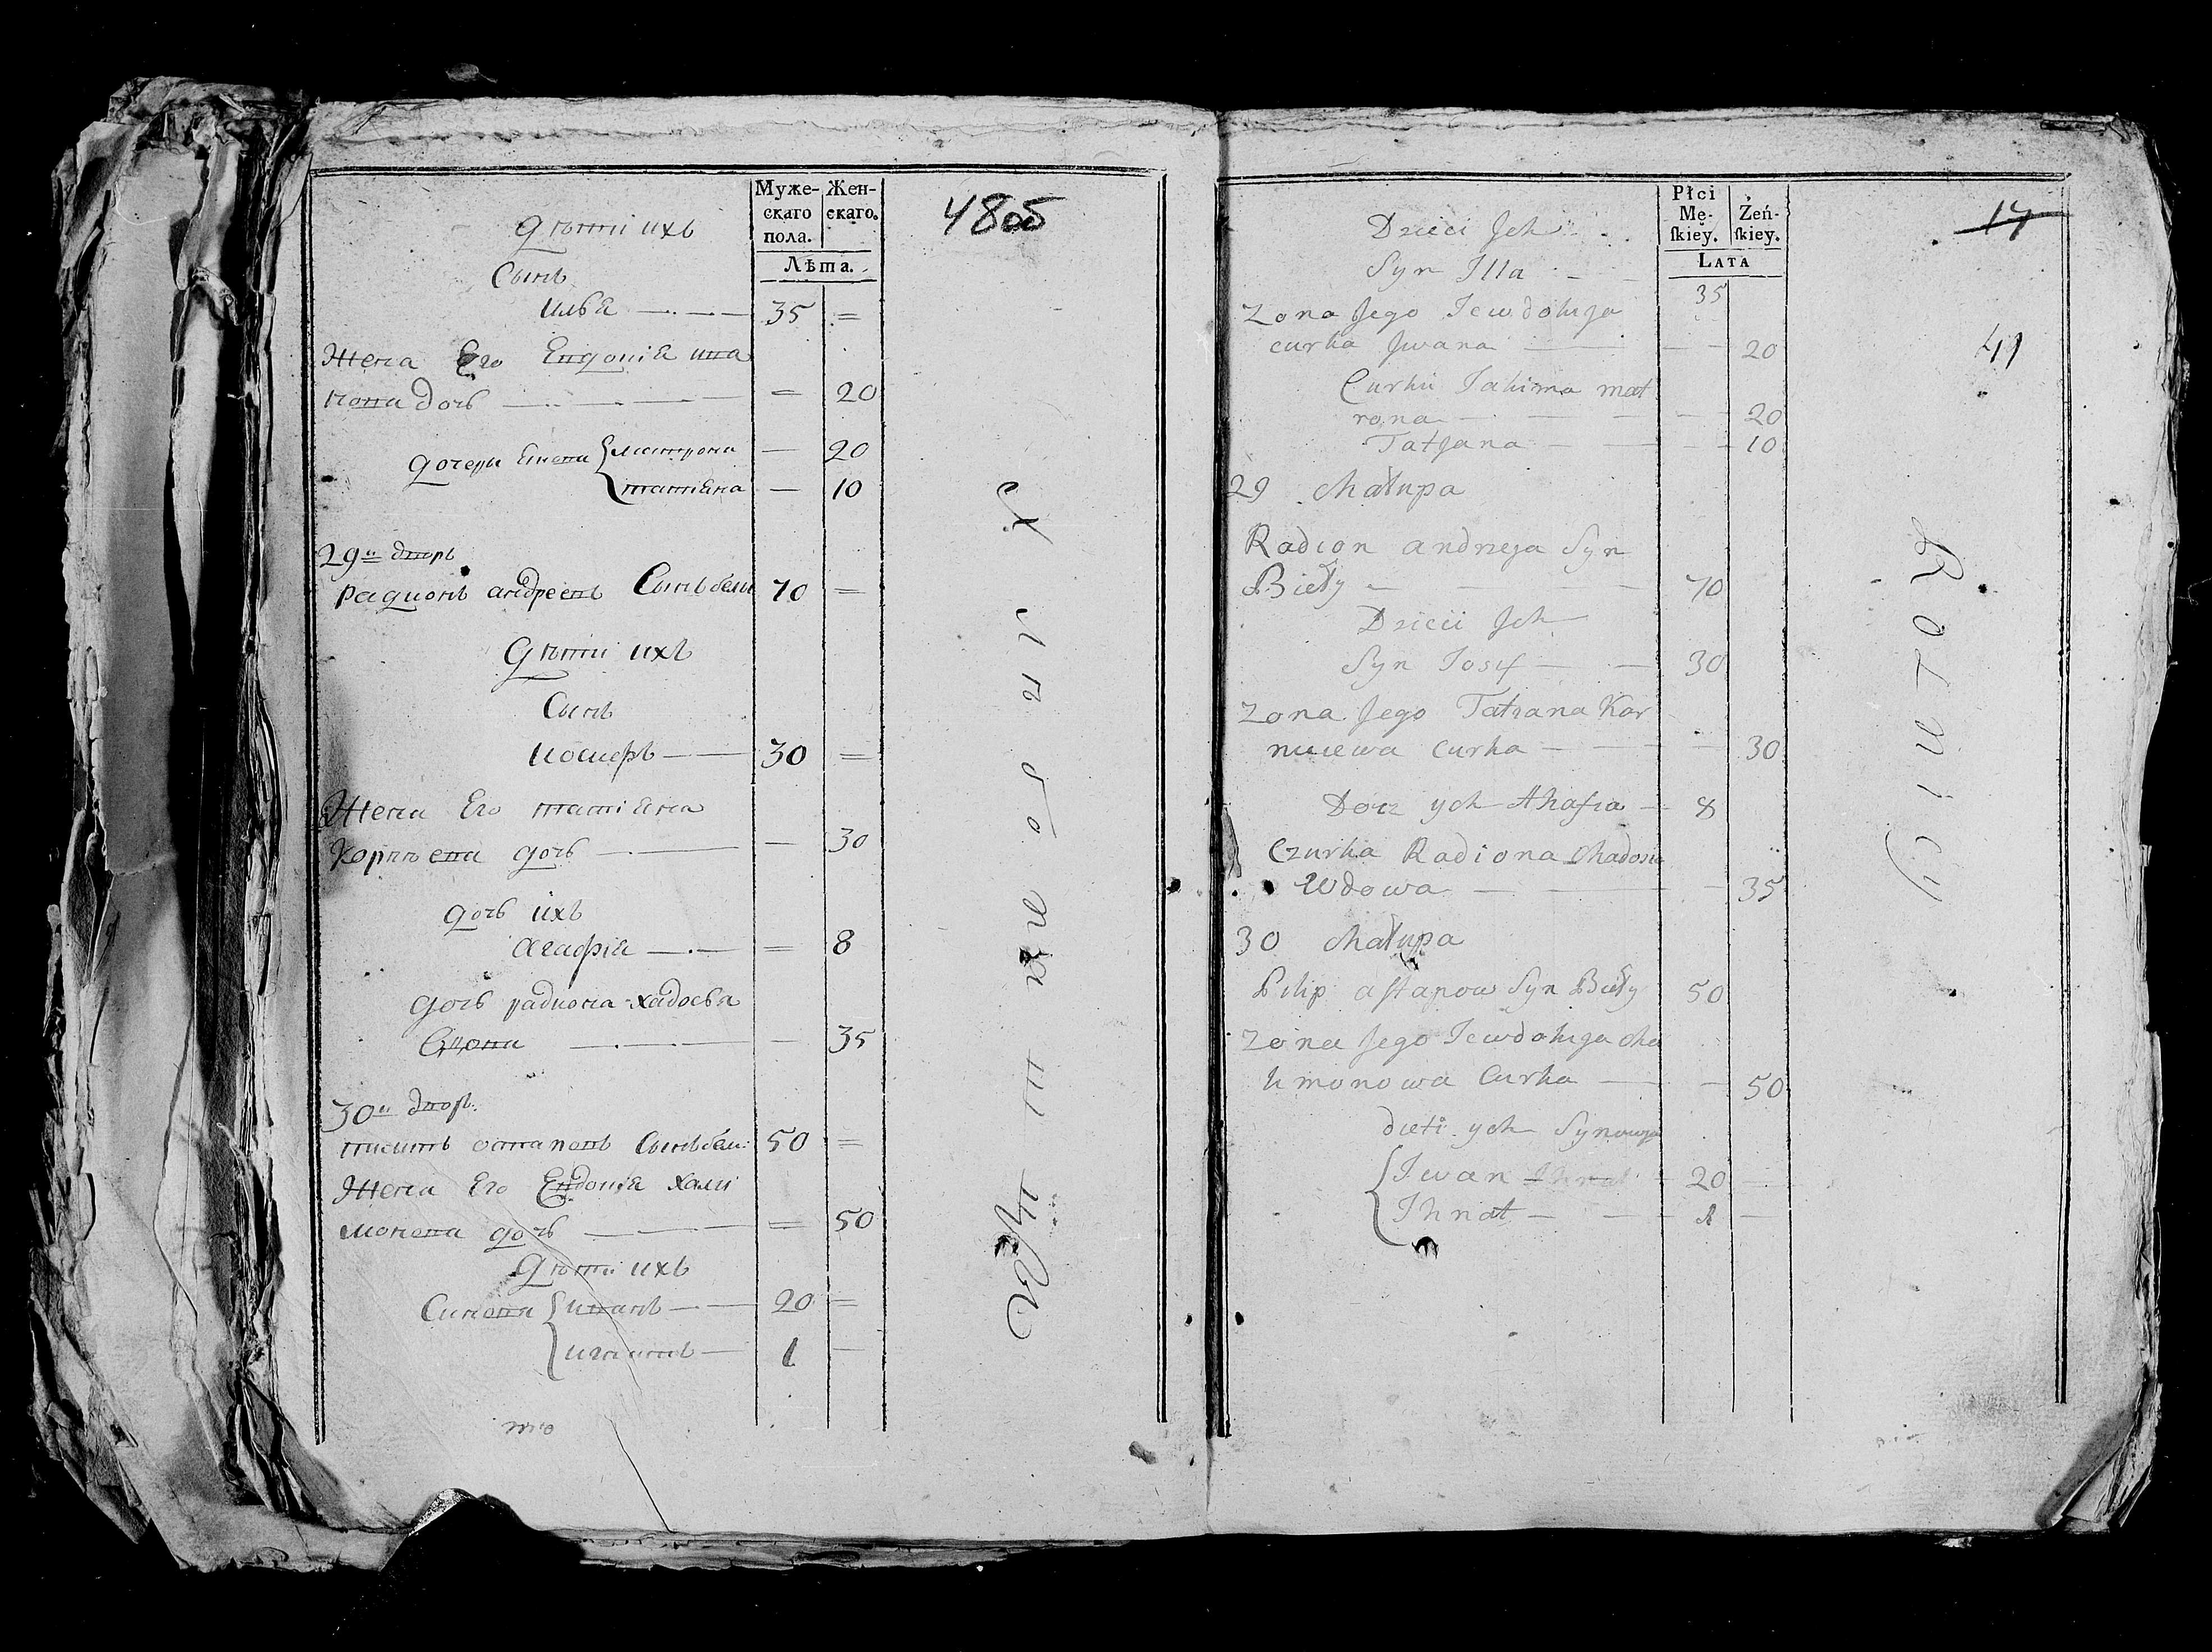 Муже-
скаго
пола.
Жен-
скаго.
Лѣта.
48об
Дѣти ихъ
Сынъ
Илья 35 =
Жена Его Евдокия ива
нова дочь = 20
дочери Матрона — 20
татияна — 10
29й дворъ
Радионъ андреевъ Сынъ белы 70 =
Дѣти ихъ
Сынъ
иосифъ 30 =
Жена Его татияна
Корнеева дочь — 30
дочь ихъ
Агафия = 8
дочь радиона хадосья
Вдова — 35
30й дворъ
остаповъ Сынъ белы 50 =
Жена Его Евдокия хали
монова дочь = 50
Дѣти ихъ
Синови иванъ 20 =
игнатъ 1 —
Płci
Mę-
skiey.
Żeń-
skiey.
LATA
14
41
Dzieci Jch
Syn Illa 35
Zona Jego Jewdokija
curka Jwana 20
Curkii Jakima mat
rona 20
Tatjana 10
29 Chałupa
Radion andrzeja Syn
Bieły 70
Dzieci Jch
Syn Josif 30
Zona Jego Tatiana Kar
niiewa curka 30
Docz ych Ahafia 8
Czurka Radiona Chadosia
Wdowa 35
30 Chałupa
Pilip astapow Syn Bieły 50
Zona Jego Jewdokija cha
limonowa Curka 50
dieti ych Synowja
Iwan 20
Ihnat 1